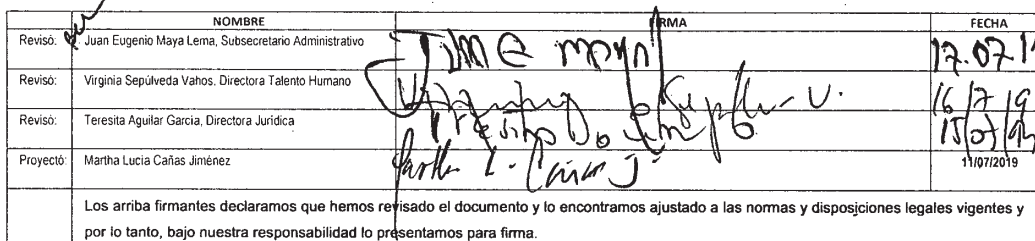 NOMBRE FIRMA FECHA
Revisó: Juan Eugenio Maya Lema, Subsecretario Administrativo 17.07.1
Revisó: Virginia Sepúlveda Vahos. Directora Talento Humano 16/7/19
Revisó: Teresita Aguilar Garcia, Directora Jurídica 15/07/19
Proyectó: Martha Lucia Cañas Jiménez Martha L. Cañas J. 11/07/2019
Los arriba firmantes declaramos que hemos revisado el documento y lo encontramos ajustado a las normas y disposiciones legales vigentes y
por lo tanto, bajo nuestra responsabilidad lo presentamos para firma.